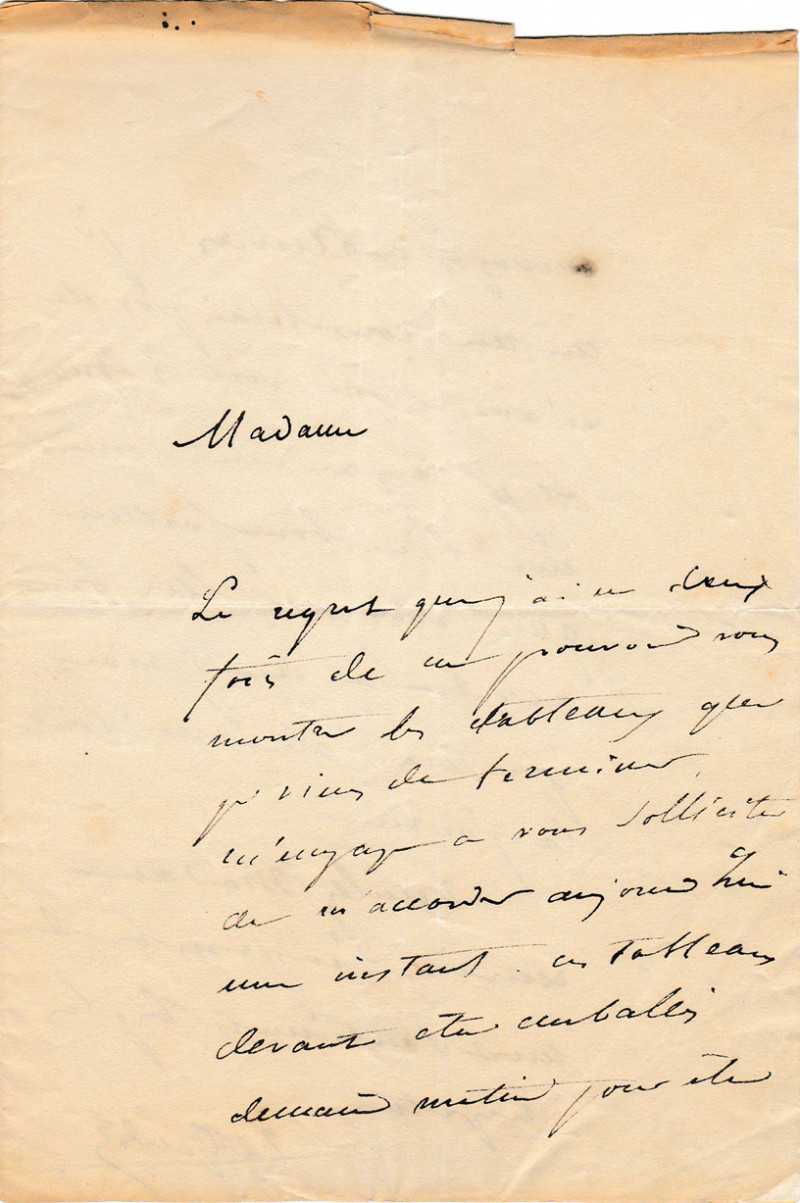 Madame
Le regret que j'ai eu deux
fois de ne pouvoir vous
montrer les tableaux que
je viens de terminer,
m'engage a vous solliciter
de m'accorder aujourd'hui
une instant. ces tableaux
devant etre emballés
demain matin pour être